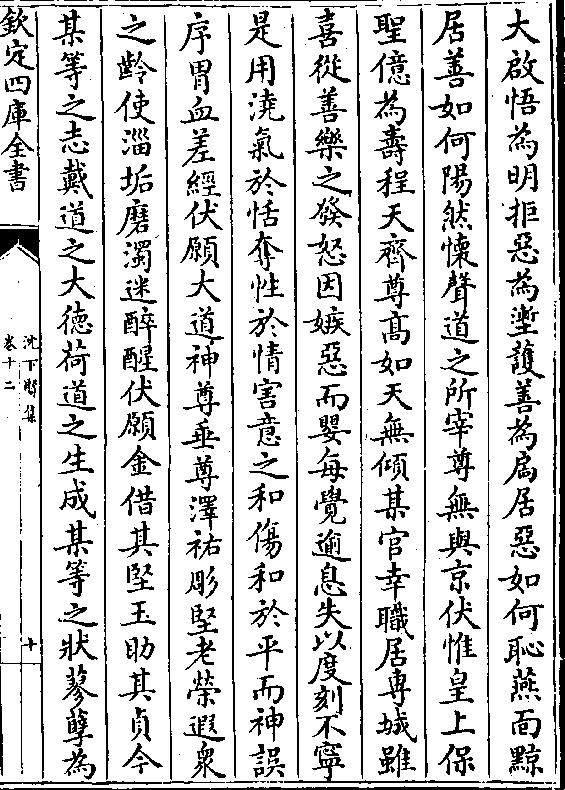 大啟悟為明拒惡為塹護善為扃居惡如何恥燕面黥
居善如何陽然懷聲道之所宰尊無與京伏惟皇上保
聖億為壽程天齊尊髙如天無傾某官幸職居専城雖
喜從善樂之發怒因嫉惡而嬰每覺逾息失以度刻不寧
是用澆氣於恬奪性於情害意之和傷和於平而神誤
序胃血差經伏願大道神尊垂尊澤祐彫堅老榮遐衆
之齡使淄垢磨濁迷醉醒伏願金借其堅玉助其貞今
某等之志戴道之大徳荷道之生成某等之狀蓼孽為
欽定四庫全書
沈下賢集
卷十二
十